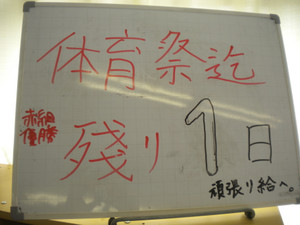 体育祭迄
赤組
優勝
残り1日
頑張り給へ。